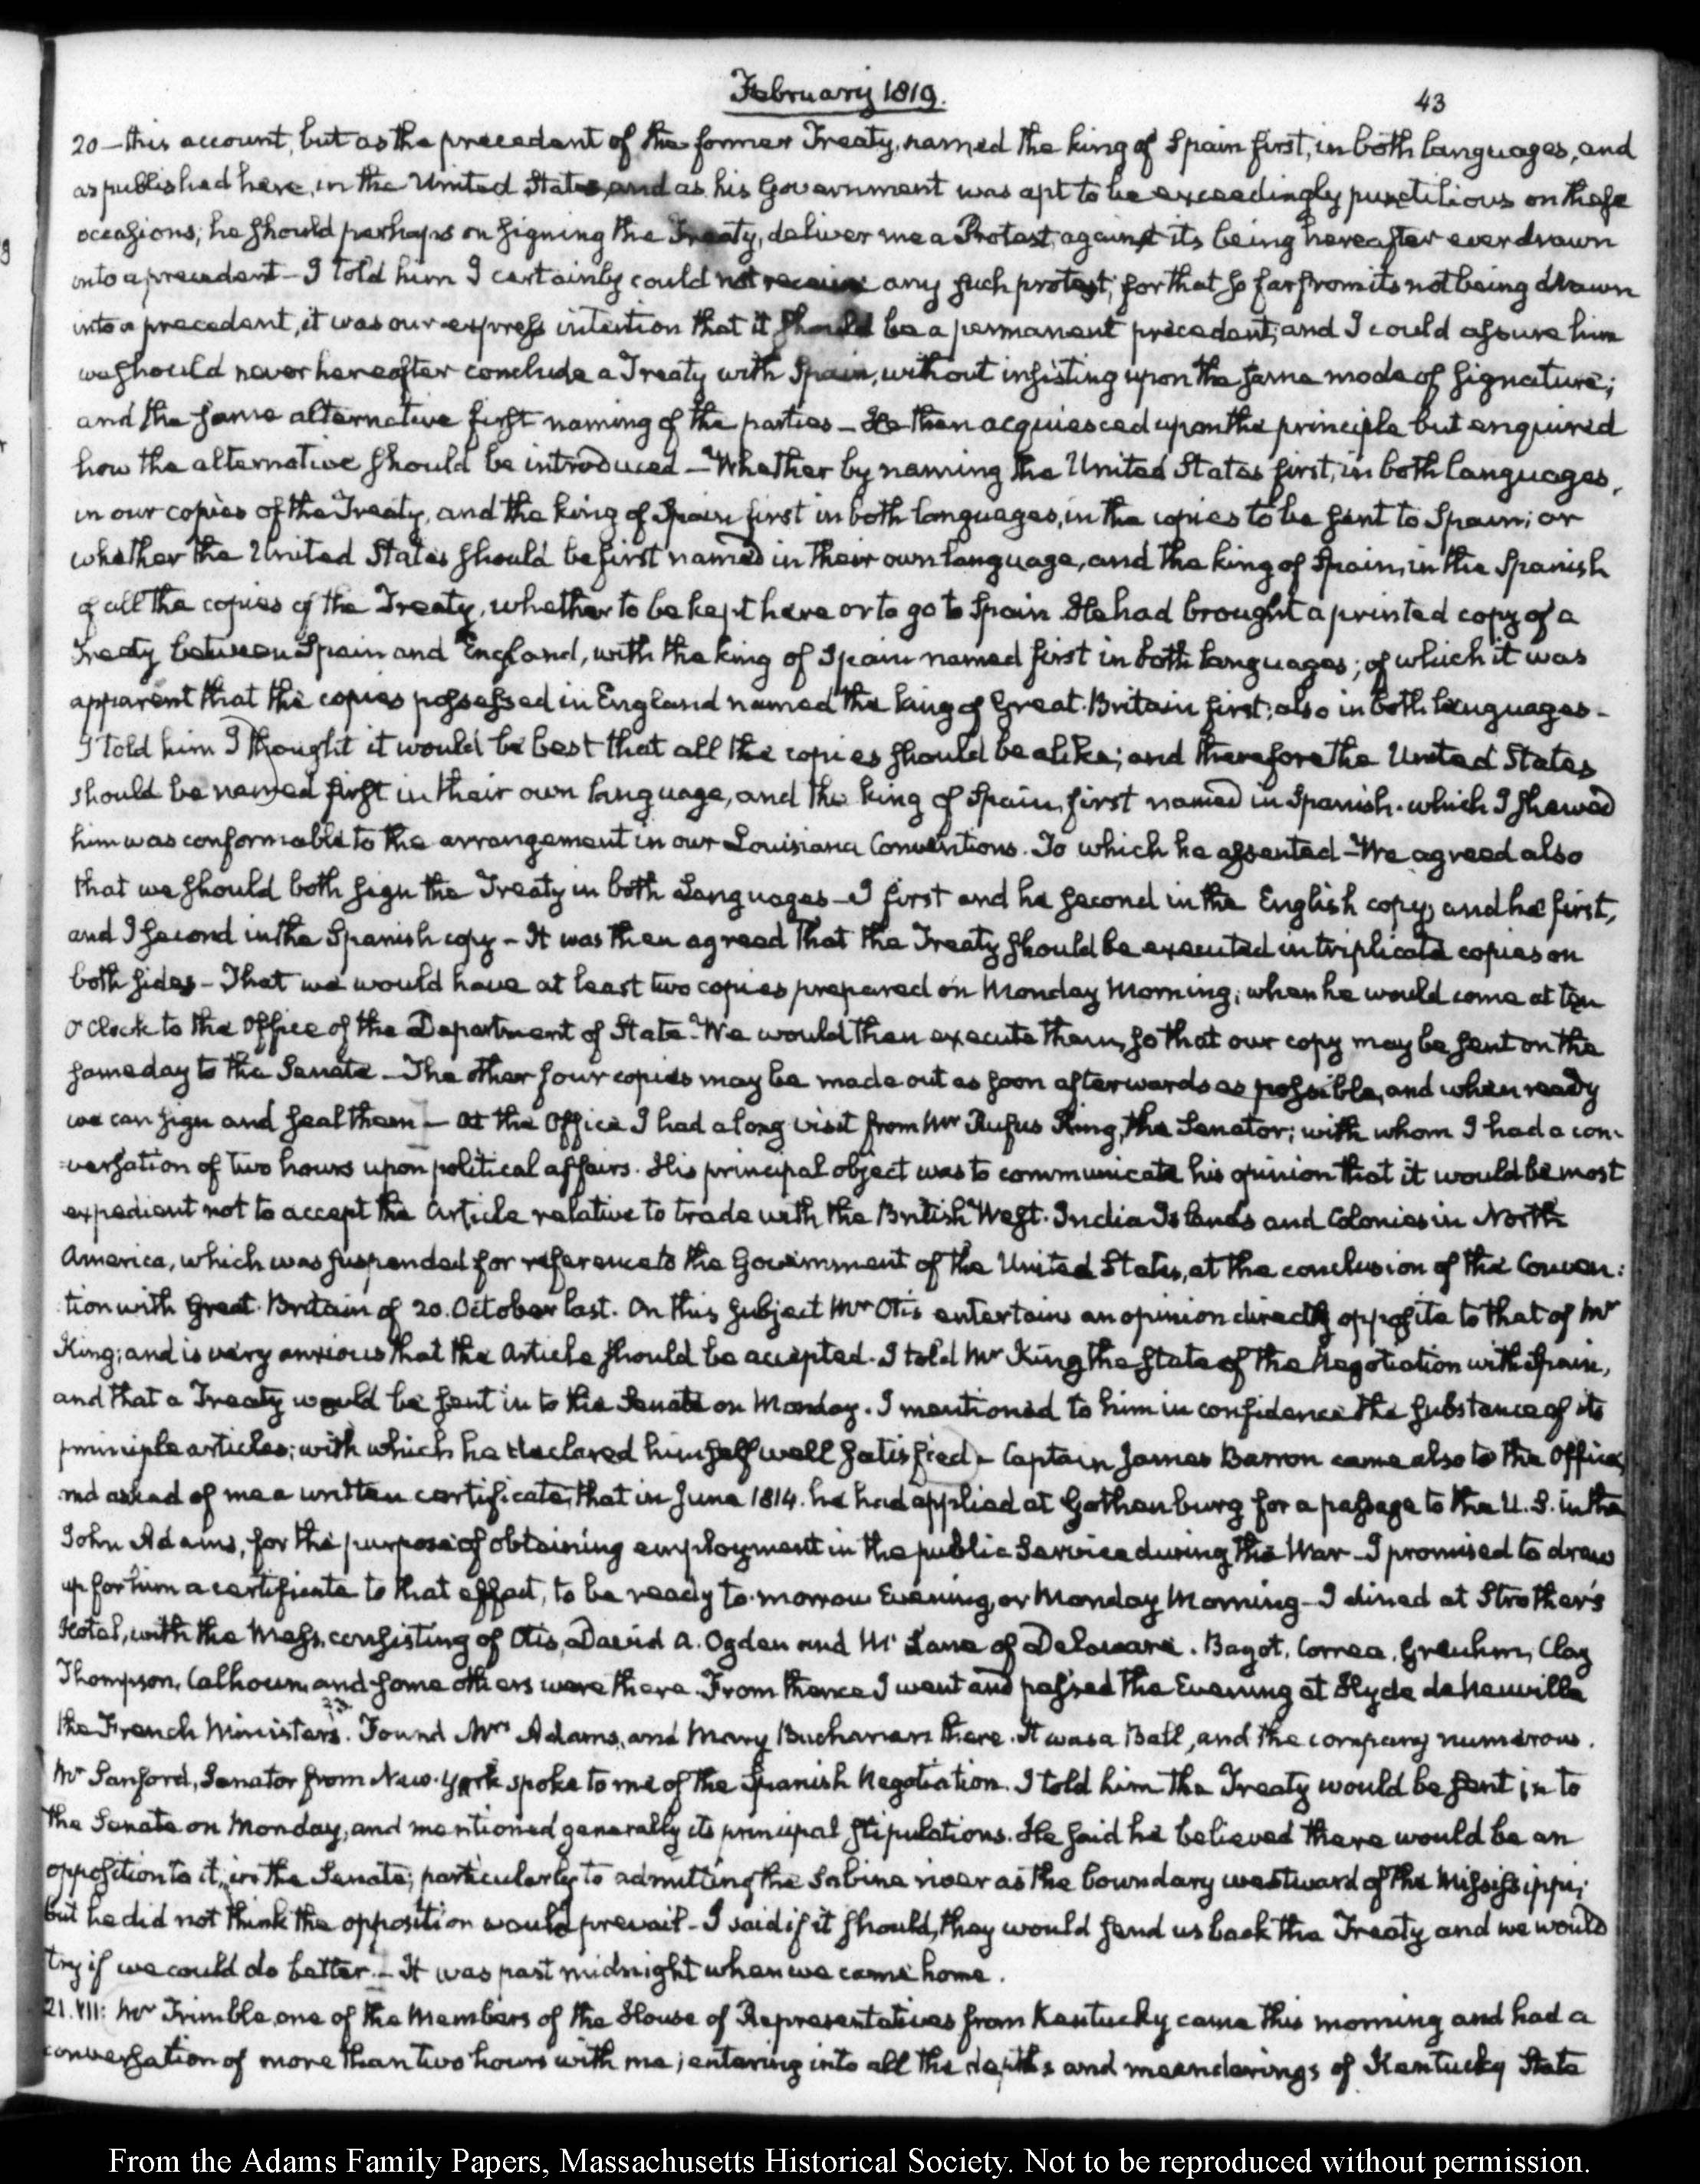 February 1819.
43
20 — this account, but as the precedent of the former Treaty, named the king of Spain first, in both languages, and
as published here, in the United States, and as his Government was apt to be exceedingly punctilious on these
occasions; he should perhaps on signing the Treaty, deliver me a Protest, against its being hereafter ever drawn
into a precedent — I told him I certainly could not receive any such protest; for that so far from its not being drawn
into a precedent, it was our express intention that it should be a permanent precedent; and I could assure him
we should never hereafter conclude a Treaty with Spain, without insisting upon the same mode of signature;
and the same alternative first naming of the parties — He then acquiesced upon the principle but enquired
how the alternative should be introduced — Whether by naming the United States first, in both languages,
in our copies of the Treaty, and the king of Spain first in both languages, in the copies to be sent to Spain; or
whether the United States should be first named in their own language, and the king of Spain, in the Spanish
of all the copies of the Treaty, whether to be kept here or to go to Spain. He had brought a printed copy of a
Treaty between Spain and England, with the king of Spain named first in both languages; of which it was
apparent that the copies possessed in England named the king of Great-Britain first; also in both languages —
I told him I thought it would be best that all the copies should be alike; and therefore the United States
should be named first in their own language, and the king of Spain, first named in Spanish. which I shewed
him was conformable to the arrangement in our Louisiana Conventions. To which he assented — We agreed also
that we should both sign the Treaty in both Languages — I first and he second in the English copy, and he first,
and I second in the Spanish copy — It was then agreed that the Treaty should be executed in triplicate copies on
both sides — That we would have at least two copies prepared on Monday Morning; when he would come at ten
O'Clock to the Office of the Department of State. We would then execute them, so that our copy may be sent on the
same day to the Senate — The other four copies may be made out as soon afterwards as possible, and when ready
we can sign and seal them — At the Office I had a long visit from Mr Rufus King, the Senator; with whom I had a con-
versation of two hours upon political affairs. His principal object was to communicate his opinion that it would be most
expedient not to accept the Article relative to trade with the British West-India Islands and Colonies in North
America, which was suspended for reference to the Government of the United States, at the conclusion of the Conven:
tion with Great-Britain of 20. October last. On this subject Mr Otis entertains an opinion directly opposite to that of Mr
King; and is very anxious that the Article should be accepted. I told Mr King the state of the Negotiation with Spain,
and that a Treaty would be sent in to the Senate on Monday. I mentioned to him in confidence the substance of its
principle articles; with which he declared himself well satisfied — Captain James Barron came also to the Office,
and asked of me a written certificate, that in June 1814. he had applied at Gothenburg for a passage to the U.S. in the
John Adams, for the purpose of obtaining employment in the public Service during the War — I promised to draw
up for him a certificate to that effect, to be ready to-morrow Evening, or Monday Morning — I dined at Strother's
Hotel, with the Mess, consisting of Otis, David A. Ogden and Mc Lane of Delaware. Bagot, Correa, Greuhm, Clay
Thompson, Calhoun, and some others were there. From thence I went and passed the Evening at Hyde de Neuville
the French Minister's. Found Mrs Adams, and Mary Buchanan there. It was a Ball, and the company numerous.
Mr Sanford, Senator from New-York spoke to me of the Spanish Negotiation. I told him the Treaty would be sent in to
the Senate on Monday, and mentioned generally its principal stipulations. He said he believed there would be an
opposition to it, in the Senate; particularly to admitting the Sabine river as the boundary westward of the Mississippi;
but he did not think the opposition would prevail — I said if it should, they would send us back the Treaty and we would
try if we could do better. — It was past midnight when we came home.
21. VII: Mr Trimble, one of the Members of the House of Representatives from Kentucky came this morning and had a
conversation of more than two hours with me; entering into all the depths and meanderings of Kentucky State
From the Adams Family Papers, Massachusetts Historical Society. Not to be reproduced without permission.